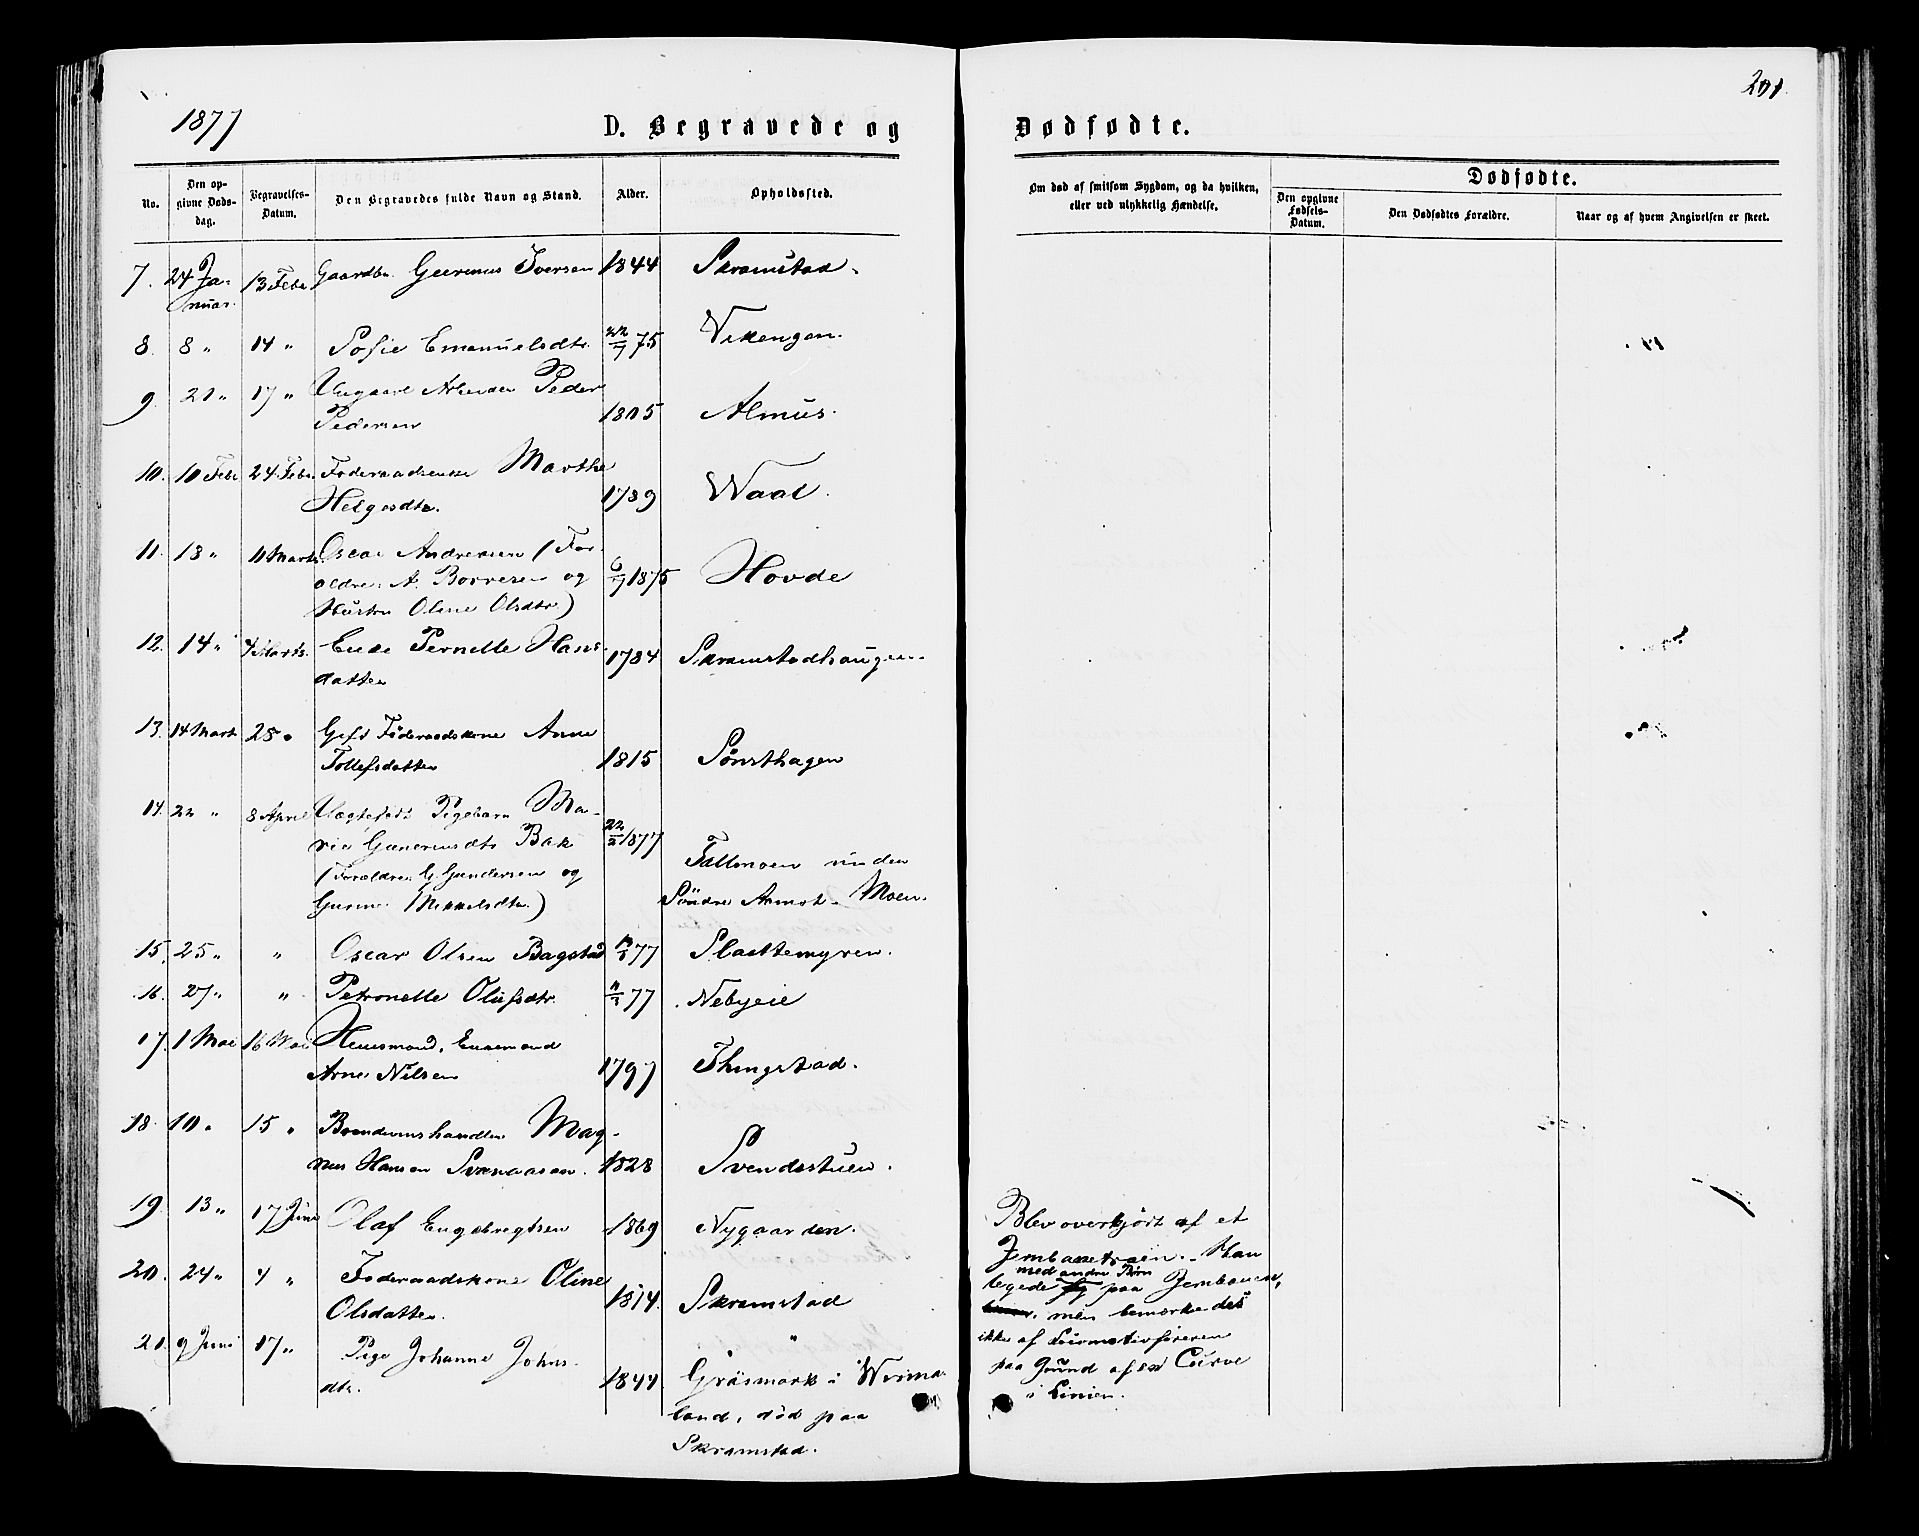 201
1877
D. Begravede og
Dødfødte.
No.
Den opgivne Dødsdag.
Begravelses-Datum.
Den Begravedes fulde Navn og Stand.
Alder.
Opholdssted.
Om død af smitsom Sygdom, og da hvilken, eller ved ulykkelig Hændelse.
Dødfødte.
Den opgivne Fødsels-Datum.
Den Dødfødtes Forældre.
Naar og af hvem Angivelsen er skeet.
7. 24 Januar. 13 Febr Gaardbr. Iversen 1844 Skramstad.
8. 8 " 14 " Sofie Emanuelsdtr. 22/7 75 Vikengen.
9. 21 " 17 " Arbeider Peder
Pedersen 1805 Almus.
10. 10 Febr 24 Febr. Marthe
Helgesdtr. 1789 Waal.
11. 13 " 11 Marts Oscar Andreasen (For-
ældre: A. Borresen og 6/7 1875 Hovde
Hustru Oline Olsdtr.)
12. 14 " 4 Marts. Enke Pernelle Hans-
datter 1784 Skramstadhaugen.
13. 14 Marts 25 " Gift Föderaadskone Anne
Tollefsdatter 1815 Sönsthagen
14. 22 " 8 April Uægtefödt Pigebarn Ma-
rie Guneriusdtr Bak 22/2 1877
(Forældre: G. Gundersen og
Mikkelsdtr.)
Tallmoen under
Söndre Aamot-Moen.
15. 25 " " Oscar Olsen Bagstad 77 Slaattemyren.
16. 27 " " Petronelle Olufsdtr. 77 Nebyeie
17. 1 Mai 16 Mai Huusmand, Enkemand
Arne Nilsen 1797 Thingstad.
18. 10 " 15 " Brændeviinshandler Mag-
nus Hansen 1828 Svendsstuen.
19. 13 " 17 Juni Olaf Engebregtsen 1869 Nygaarden.
Blev overkjört af et
Jernbanetræin. Han
med andre Börn
legede paa Jernbanen,
men bemærkedes
ikke af Locomotivföreren
paa Grund af en Curve
i Linien.
20. 24 " 4 " Föderaadskone Oline
Olsdatter. 1814. Skramstad
21. 9 Juni 17 " Pige Johanne Johns-
dtr. 1844 Gräsmark i Werma-
land, död paa
Skramstad.